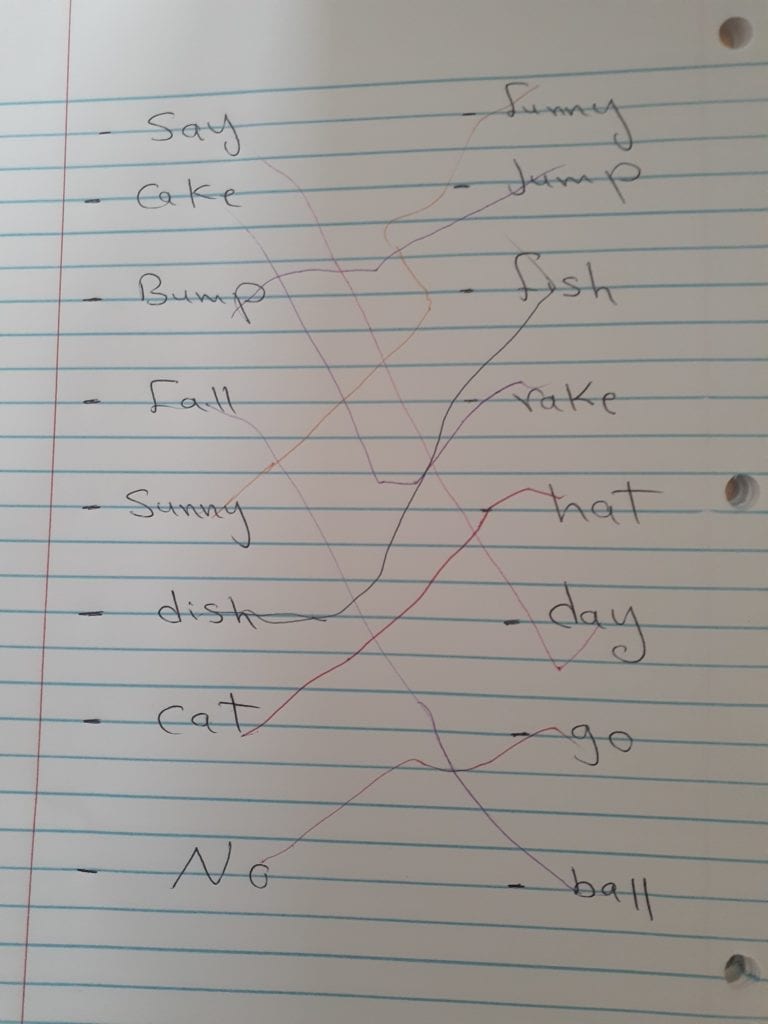 - Say - funny
- Cake - Jump
- Bump - fish
- fall - rake
- Sunny hat
- dish - day
- cat - go
- No - ball